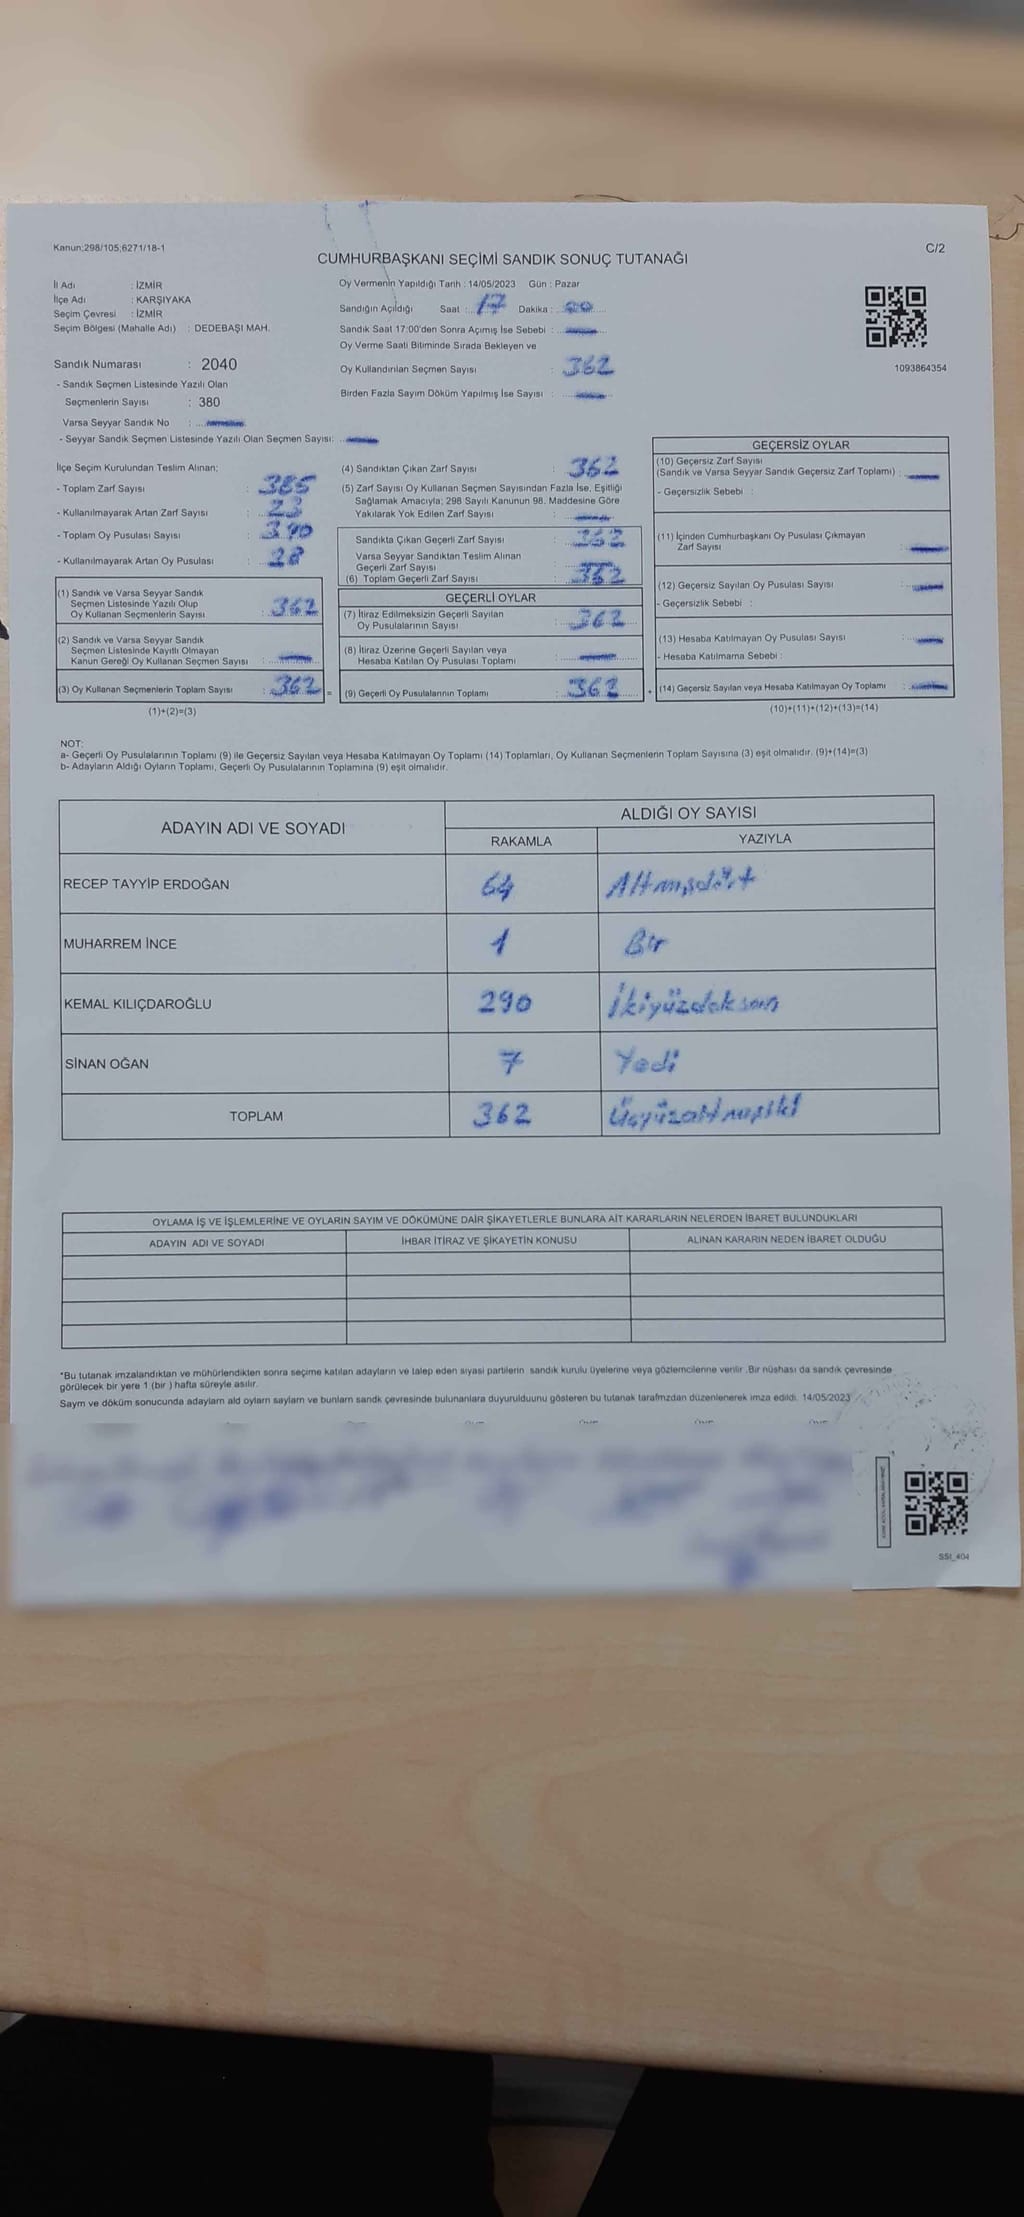 Kanun:298/105,6271/18-1
C/2
CUMHURBAŞKANI SEÇİMİ SANDIK SONUÇ TUTANAĞI
İl Adı : İZMİR
İlçe Adı : KARŞIYAKA
Seçim Çevresi : İZMİR
Seçim Bölgesi (Mahalle Adı) : DEDEBAŞI MAH.
Sandık Numarası : 2040
- Sandık Seçmen Listesinde Yazılı Olan
Seçmenlerin Sayısı : 380
Varsa Seyyar Sandık No :
- Seyyar Sandık Seçmen Listesinde Yazılı Olan Seçmen Sayısı:
Oy Vermenin Yapıldığı Tarih : 14/05/2023 Gün : Pazar
Sandığın Açıldığı Saat : 17 Dakika : 00
Sandık Saat 17:00'den Sonra Açımış İse Sebebi :
Oy Verme Saati Bitiminde Sırada Bekleyen ve
Oy Kullandırılan Seçmen Sayısı : 362
Birden Fazla Sayım Döküm Yapılmış İse Sayısı :
1093864354
İlçe Seçim Kurulundan Teslim Alınan;
- Toplam Zarf Sayısı : 385
- Kullanılmayarak Artan Zarf Sayısı : 23
- Toplam Oy Pusulası Sayısı : 390
- Kullanılmayarak Artan Oy Pusulası : 28
(1) Sandık ve Varsa Seyyar Sandık
Seçmen Listesinde Yazılı Olup
Oy Kullanan Seçmenlerin Sayısı : 362
(2) Sandık ve Varsa Seyyar Sandık
Seçmen Listesinde Kayıtlı Olmayan
Kanun Gereği Oy Kullanan Seçmen Sayısı :
(3) Oy Kullanan Seçmenlerin Toplam Sayısı : 362 =
(1)+(2)=(3)
(4) Sandıktan Çıkan Zarf Sayısı : 362
(5) Zarf Sayısı Oy Kullanan Seçmen Sayısından Fazla İse, Eşitliği
Sağlamak Amacıyla; 298 Sayılı Kanunun 98. Maddesine Göre
Yakılarak Yok Edilen Zarf Sayısı :
Sandıkta Çıkan Geçerli Zarf Sayısı : 362
Varsa Seyyar Sandıktan Teslim Alınan
Geçerli Zarf Sayısı :
(6) Toplam Geçerli Zarf Sayısı : 362
GEÇERLİ OYLAR
(7) İtiraz Edilmeksizin Geçerli Sayılan
Oy Pusulalarının Sayısı : 362
(8) İtiraz Üzerine Geçerli Sayılan veya
Hesaba Katılan Oy Pusulası Toplamı :
(9) Geçerli Oy Pusulalarının Toplamı : 362 +
GEÇERSİZ OYLAR
(10) Geçersiz Zarf Sayısı
(Sandık ve Varsa Seyyar Sandık Geçersiz Zarf Toplamı) :
- Geçersizlik Sebebi :
(11) İçinden Cumhurbaşkanı Oy Pusulası Çıkmayan
Zarf Sayısı :
(12) Geçersiz Sayılan Oy Pusulası Sayısı :
- Geçersizlik Sebebi :
(13) Hesaba Katılmayan Oy Pusulası Sayısı :
- Hesaba Katılmama Sebebi :
(14) Geçersiz Sayılan veya Hesaba Katılmayan Oy Toplamı :
(10)+(11)+(12)+(13)=(14)
NOT:
a- Geçerli Oy Pusulalarının Toplamı (9) ile Geçersiz Sayılan veya Hesaba Katılmayan Oy Toplamı (14) Toplamları, Oy Kullanan Seçmenlerin Toplam Sayısına (3) eşit olmalıdır. (9)+(14)=(3)
b- Adayların Aldığı Oyların Toplamı, Geçerli Oy Pusulalarının Toplamına (9) eşit olmalıdır.
ADAYIN ADI VE SOYADI
ALDIĞI OY SAYISI
RAKAMLA YAZIYLA
RECEP TAYYİP ERDOĞAN 64 Altmışdört
MUHARREM İNCE 1 Bir
KEMAL KILIÇDAROĞLU 290 İkiyüzdoksan
SİNAN OĞAN 7 Yedi
TOPLAM 362 Üçyüzaltmışiki
OYLAMA İŞ VE İŞLEMLERİNE VE OYLARIN SAYIM VE DÖKÜMÜNE DAİR ŞİKAYETLERLE BUNLARA AİT KARARLARIN NELERDEN İBARET BULUNDUKLARI
ADAYIN ADI VE SOYADI İHBAR İTİRAZ VE ŞİKAYETİN KONUSU ALINAN KARARIN NEDEN İBARET OLDUĞU
*Bu tutanak imzalandıktan ve mühürlendikten sonra seçime katılan adayların ve talep eden siyasi partilerin sandık kurulu üyelerine veya gözlemcilerine verilir .Bir nüshası da sandık çevresinde
görülecek bir yere 1 (bir ) hafta süreyle asılır.
Saym ve döküm sonucunda adaylarn ald oylarn saylarn ve bunlarn sandk çevresinde bulunanlara duyurulduunu gösteren bu tutanak tarafmzdan düzenlenerek imza edildi. 14/05/2023
SSI_404